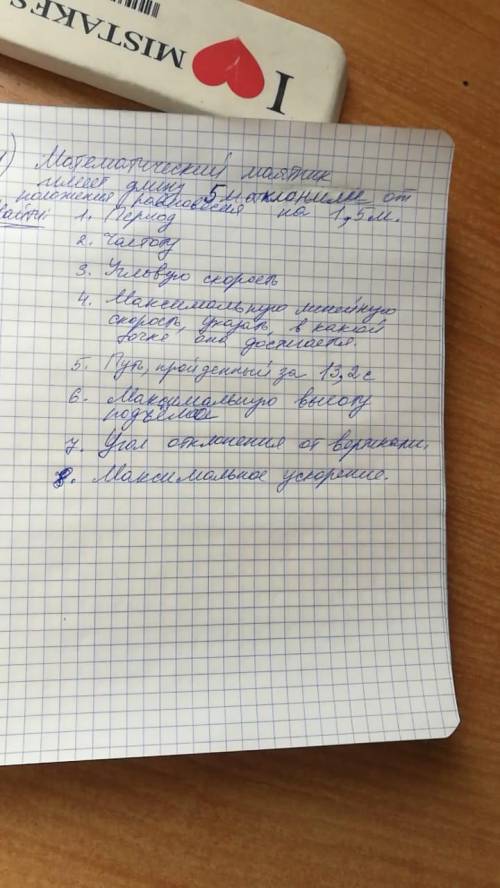 I ❤ MISTAKES
1) Математический маятник
имеет длину 5 м, отклонили от
положения равновесия на 1,5 м.
Найти: 1. Период
2. Частоту
3. Угловую скорость
4. Максимальную линейную
скорость, указать, в какой
точке она достигается.
5. Путь, пройденный за 13,2 с
6. Максимальную высоту
подъёма
7. Угол отклонения от вертикали.
8. Максимальное ускорение.